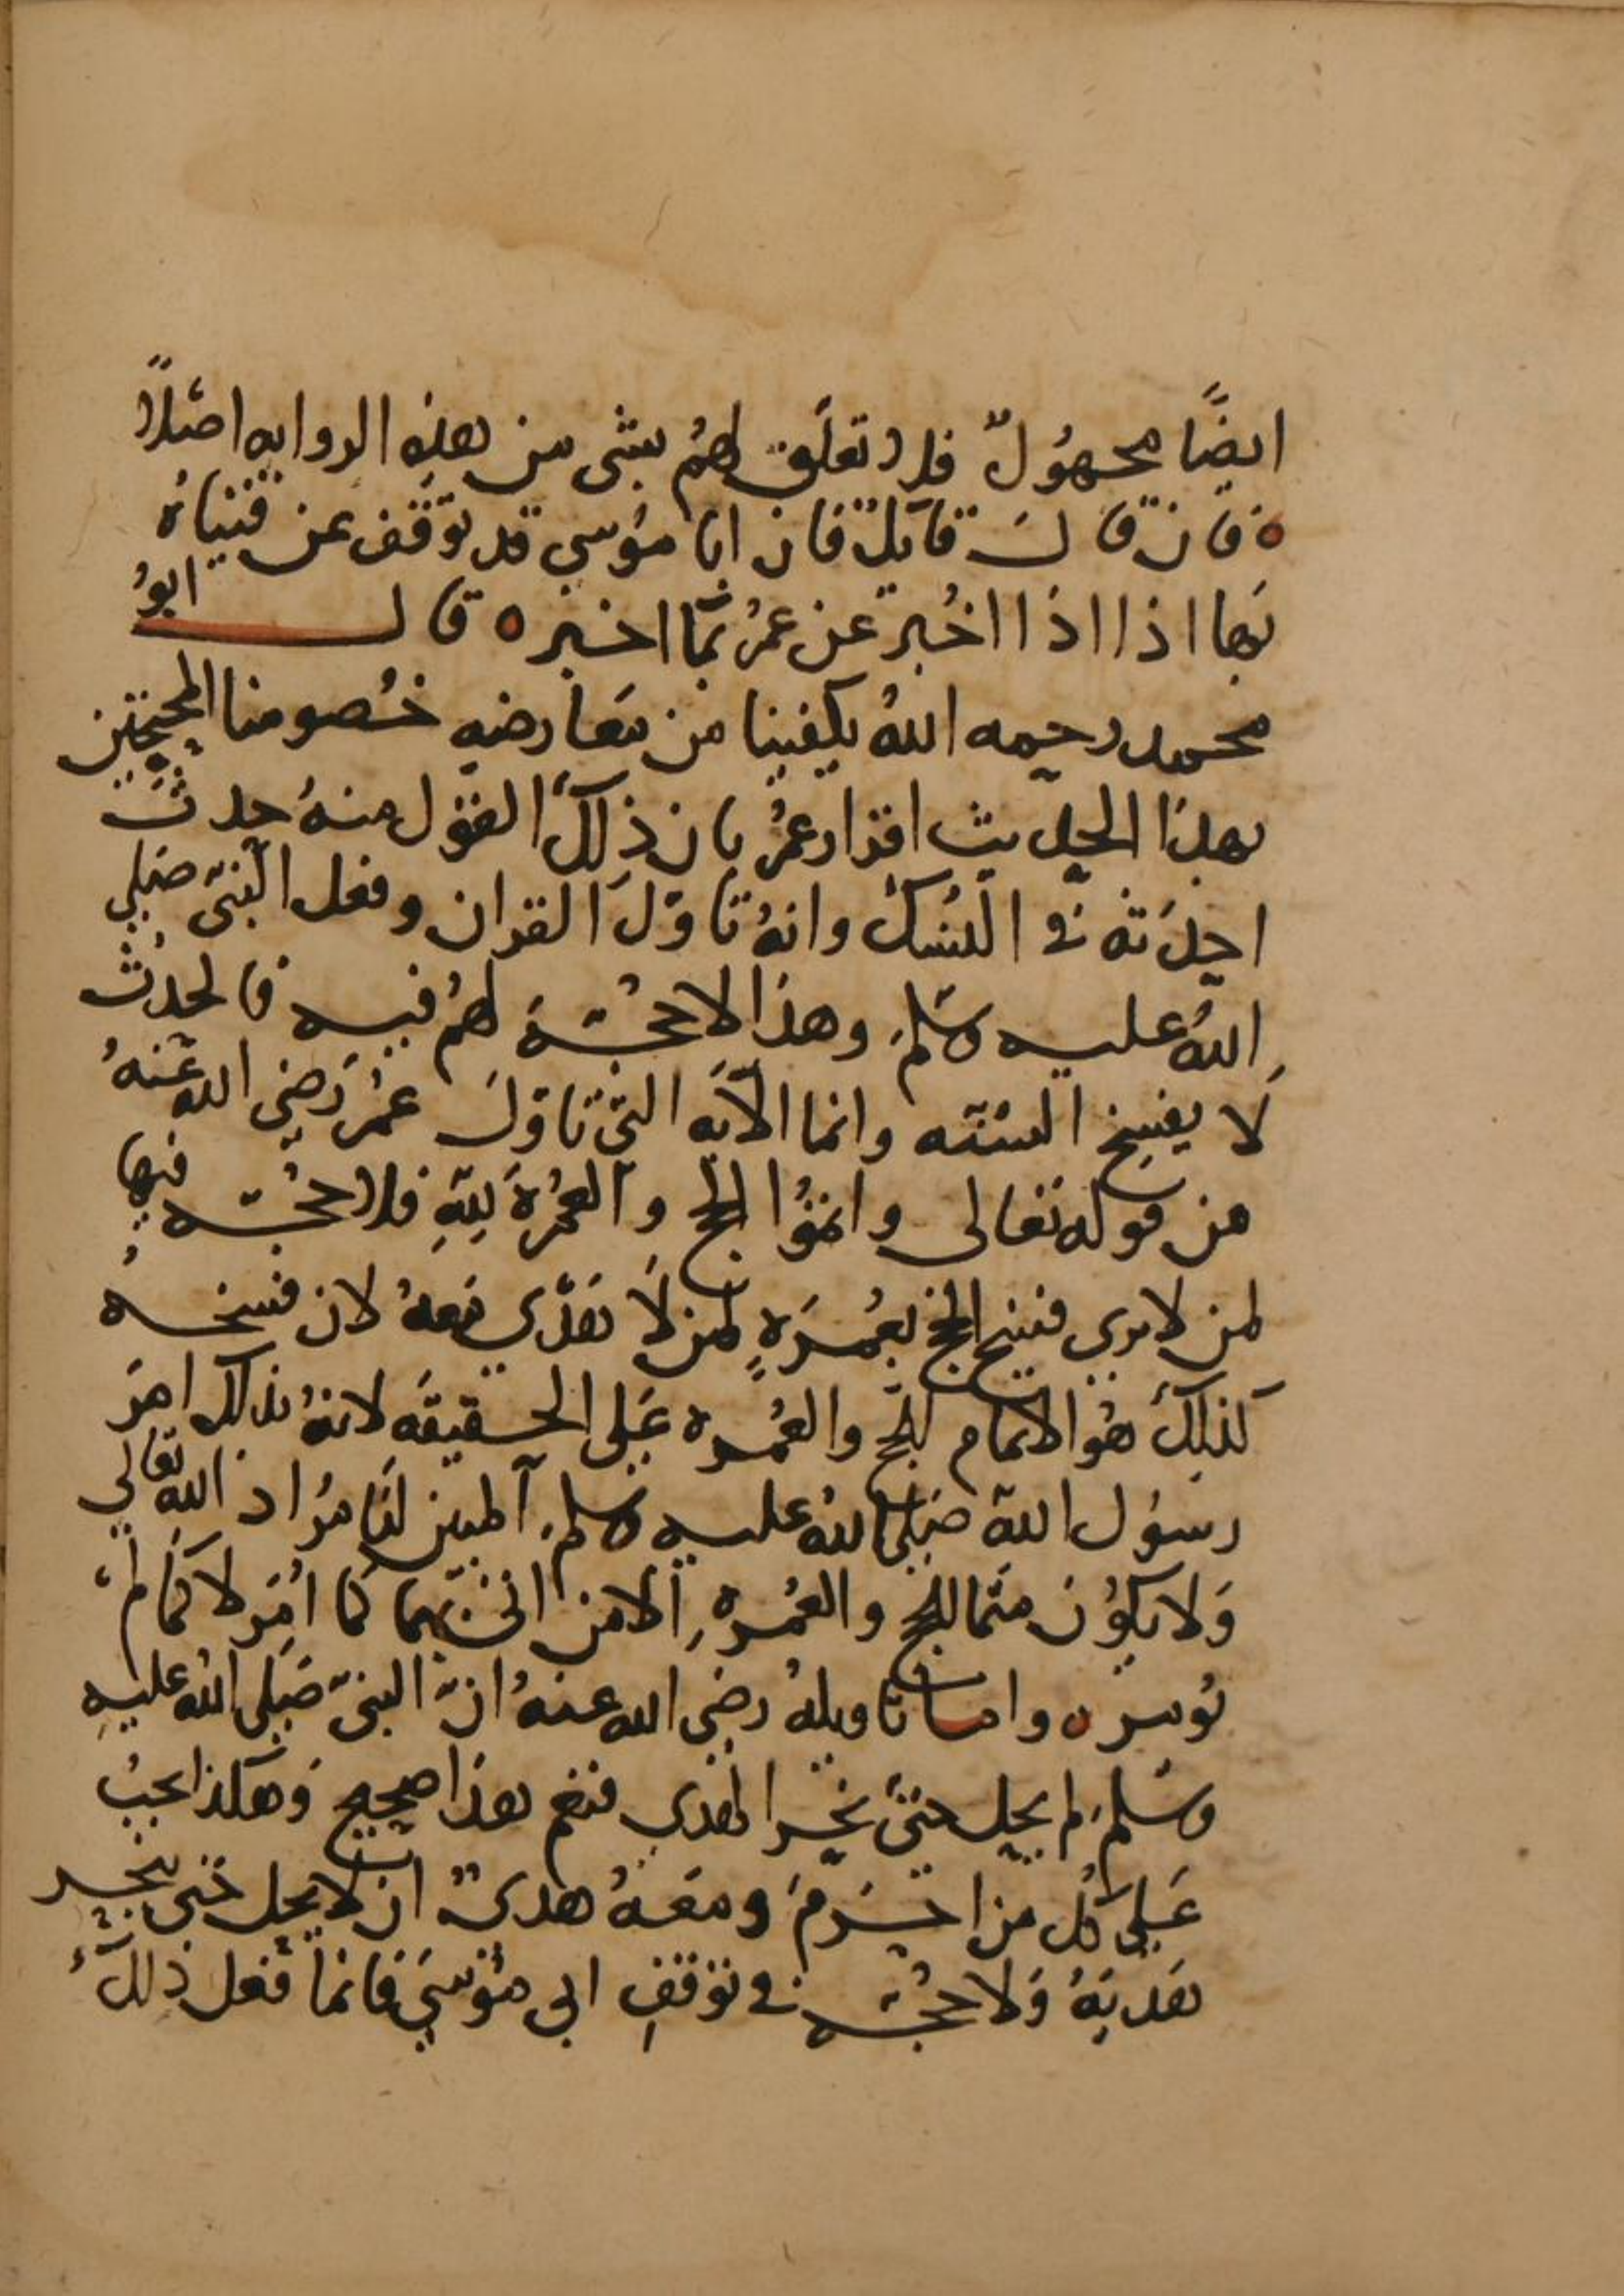 ايضًا مجهُولٌ فلا تعلّق لهُم بشي من هذِهِ الروايه اصلًا
ه فان قالَ قايلٌ فان ابا موُسي قد توَقّف عن فتياهُ
بَها اذا اذا اخُبر عن عمرُ بمَا اخبر ه قال ابوُ
محمد رحمه اللهُ يكفينا من مَعارضهِ خُصومنا المحتجّين
بهذا الحديث اقرار عمُر بان ذِلكَ القوْل منهُ حدثَ
احدَثه في النسُكُ وانهُ تاوّلَ القران وفعل النبّي صَلي
اللهُ عليه وسَلمَ وهذا لا حجُّهَ لهُم فيه فالحدثُ
لَا يفسخ السُنّه وانما الآيَه التي تاوّلَ عمُر رَضي الله عَنهُ
من قوله تعالى واتموُّا الحج والعمُرةَ لِلّهِ فلا حجُّه فيها
لمن لا يري فسخ الحج بعُمرَهٍ لمن لَا هَدْى مَعهُ لان فسخه
كذلِكَ هُو الاتمام للحج والعُمره عَلي الحقيقَه لانهُ بذلك امرَ
رسوُل الله صَلي اللهُ عليه وسلمَ المبين لنَا مرُاد الله تعَالي
وَلا يكوُن متما للحج والعُمرهِ الا من اتى بهما كما امُرَ لا كمَا لم
يوُمر ه واما تاويلهُ رضي الله عنهُ انّ النبيّ صَلي اللهُ عليهِ
وسَلمَ لم يحِل حتىَ نحَر الهَدي فنعم هذا صحيح وَهكذا يجبُ
عَلي كُل من احرَمَ ومعَهُ هَدىٌ ان لا يحِل حَتي ينحر
هَديَهُ وَلا حجُّه في توَقفِ ابي موُسيَ فانما فعَل ذلكَ